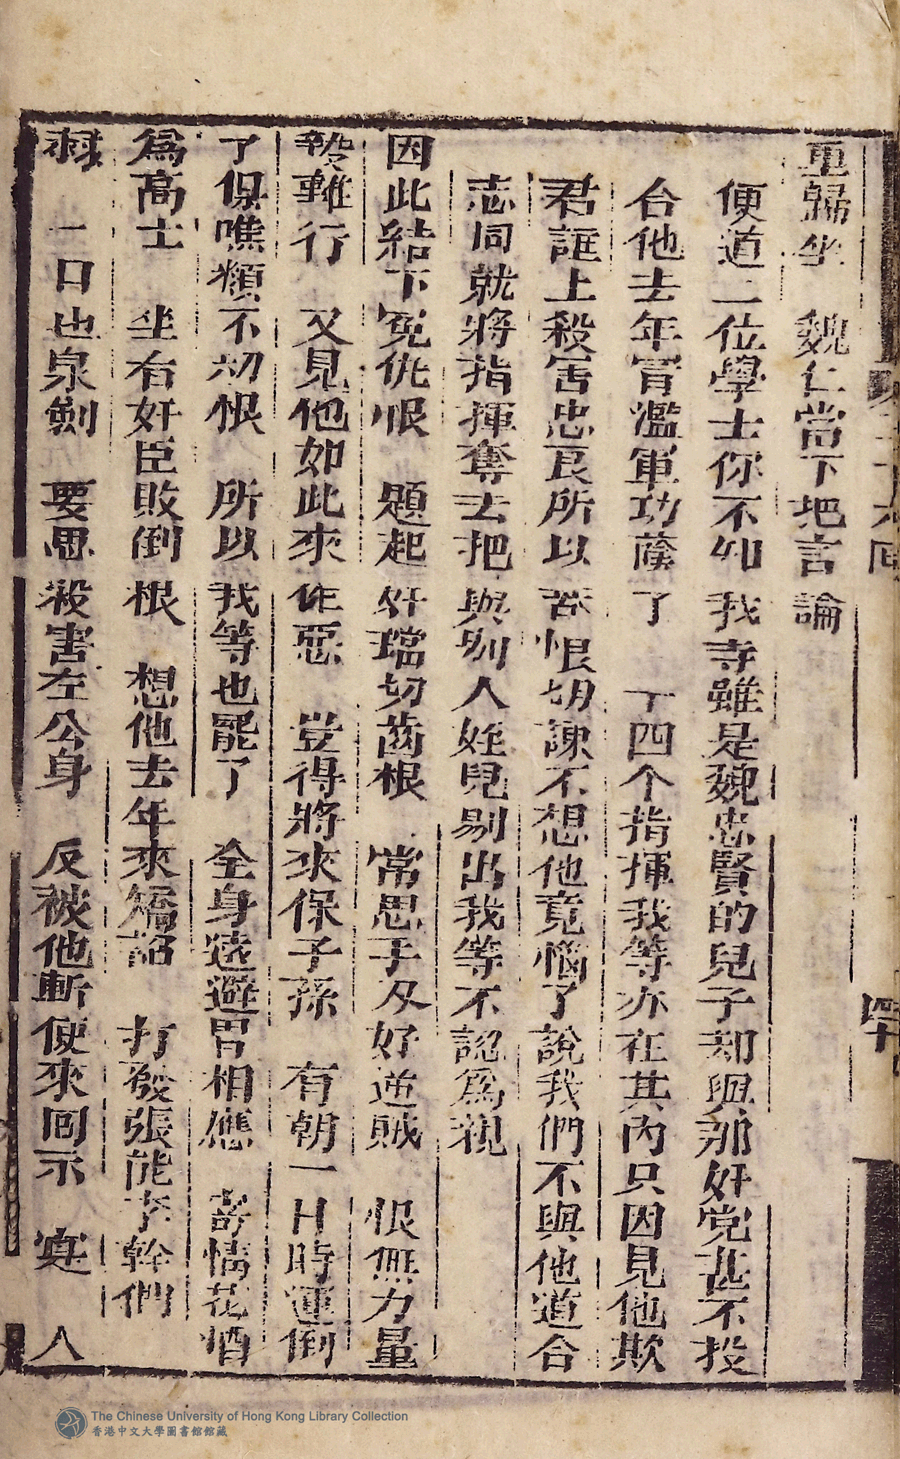 重歸坐　魏仁當下把言論
便道二位學士你不知我寺雖是魏忠賢的兒子却與那奸党甚不投
台他去年冐濫軍功蔭了　丁四个指揮我等亦在其內只因見他欺
君誑上殺害忠良所以苦恨切諫不想他竟惱了說我們不與他道合
志同就將指揮奪去把與別人姪兒剔出我等不認爲親
因此結下冤仇恨　題起奸璫切齒根　常思手刄好逆賊　恨無力量
雖行　又見他如此來作惡　豈得將來保子孫　有朝一日時運倒
了保噍類不初恨　所以我等也罷了　全身遠避胃相應　寄情花酒
爲高士　坐右奸臣敗倒根　想他去年來矯詔　打發張能李幹們
一口也泉劍　要思殺害左公身　反被他斬使來囘示　寔　人
The Chinese University of Hong Kong Library Collection
香港中文大學圖書館館藏